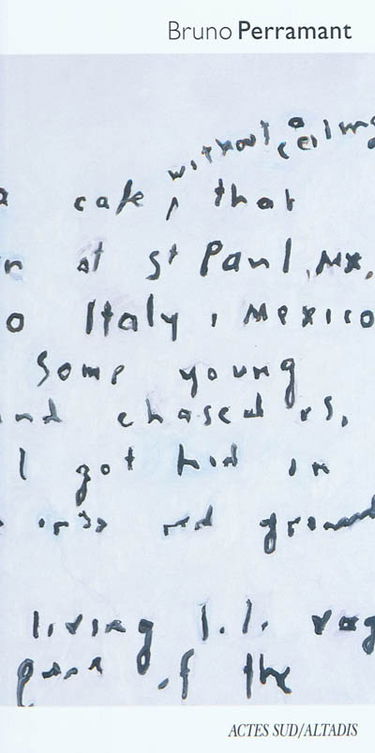 Bruno Perramant
without ceiling
a cafe, that
at St Paul, MX,
o Italy, Mexico
Some young
and chased us,
I got hid in
red ground
living I.I.
of the
ACTES SUD/ALTADIS